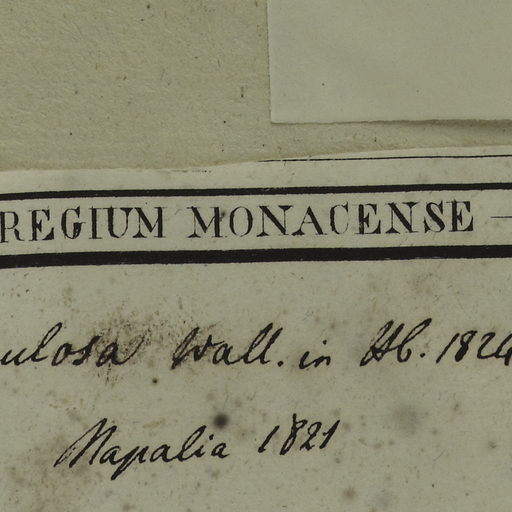 REGIUM MONACENSE —
ulosa Wall. in Hb. 1824
Napalia 1821